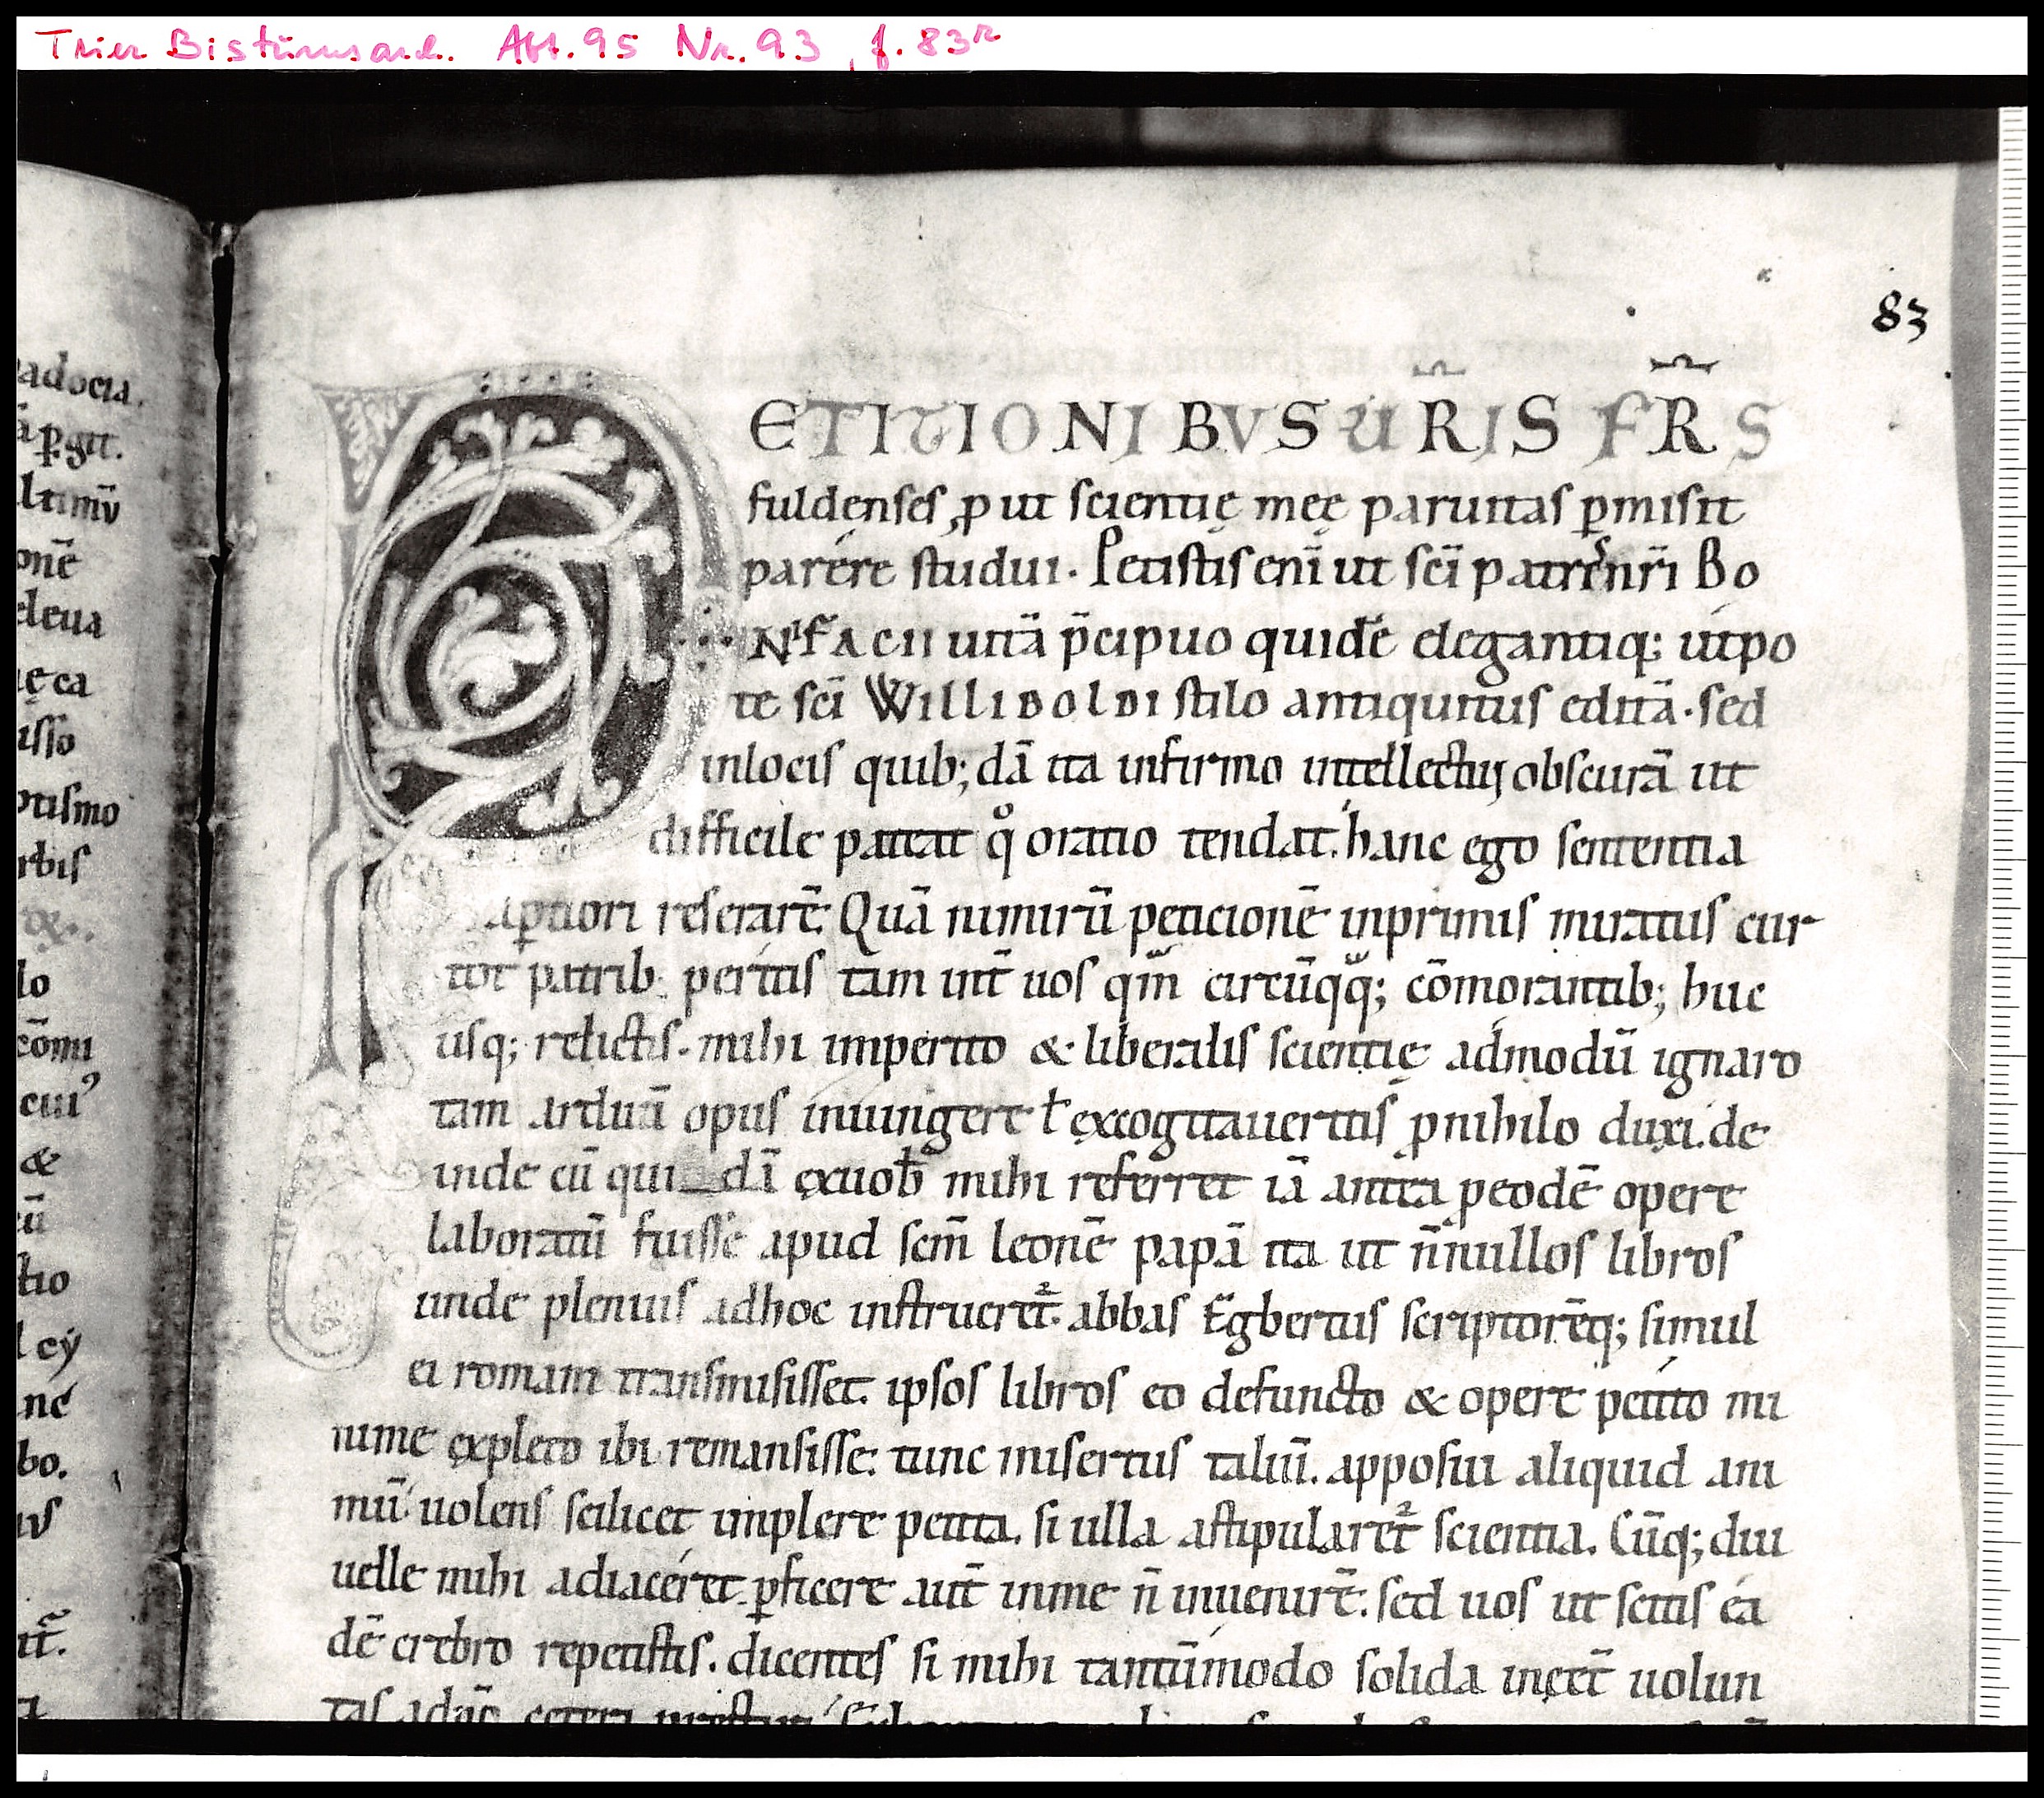 Trier Bistumsarch. Abt. 95 Nr. 93, f. 83r
83
adocia.
ꝑgit.
ltimū
onē
eleua
ęca
isso
ptismo
rbis
&.
lo
cōmi
cui⁹
&
cū
tio
l cẏ
nć
bo.
PETITIONIBVS UR̃IS FR̃S
fuldenses, ꝓut scientię meę paruitas ꝑmisit
parére studui. Petistis enī ut sc̄i patris nr̄i Bo
NIFACII uitā p̄cipuo quidē elegantiq; utpo
te sc̄i WILLIBOLDI stilo antiquitus editā. sed
inlocis quib; dā ita infirmo intellectui obscurā ut
difficile pateat qͦ oratio tendat. hanc ego sententia
aꝑtiori reserarē. Quā nimirū peticionē inprimis miratus cur
tot patrib; peritis tam int̄ uos qm̄ circūqͣq; cōmorantib; huc
usq; relictis. mihi imperito & liberalis scientię admodū ignaro
tam arduū opus iniungere ł excogitaueritis ꝓnihilo duxi. de
inde cū qui dā exuob̄ mihi referret iā antea ꝓeodē opere
laboratū fuisse apud scm̄ leonē papā ita ut n̄nullos libros
unde plenius adhoc instrueret᷑. abbas Egbertus scriptorēq; simul
ei romam transmisisset. ipsos libros eo defuncto & opere petito mi
nime expleto ibi remansisse. tunc misertus taliū. apposui aliquid ani
mū uolens scilicet implere petita. si ulla astipularet᷑ scientia. Cūq; diu
uelle mihi adiaceret. ꝑficere aut̄ inme n̄ inuenirē. sed uos ut scitis ea
dē crebro repetistis. dicentes si mihi tantūmodo solida inęēt uolun